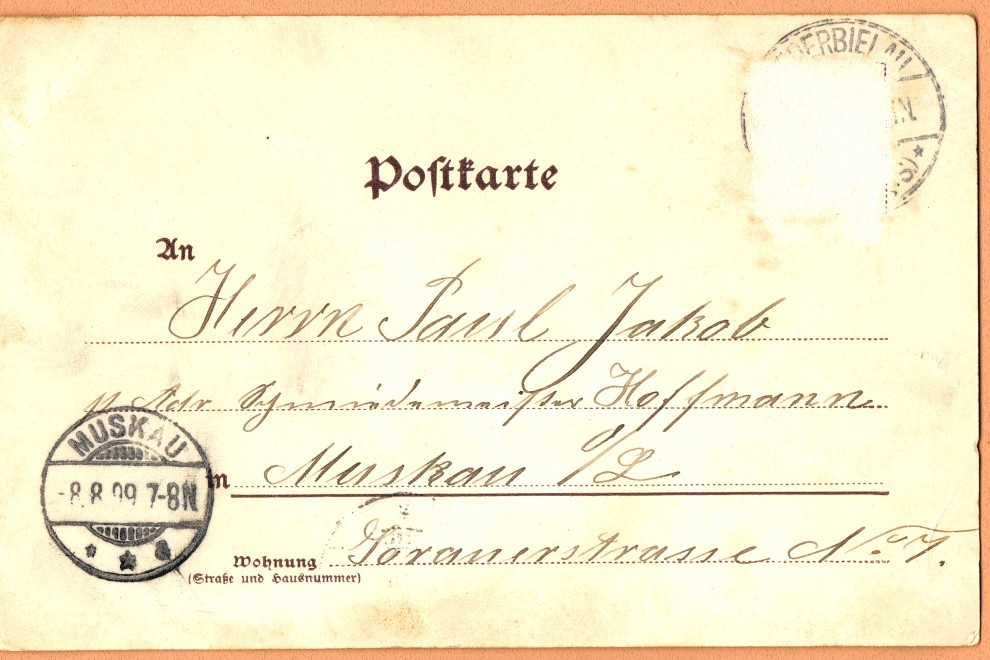 DERBIELAU
Postkarte
An
Herrn Paul Jakob
p. Adr Schmiedemeister Hoffmann
MUSKAU
-8.8.99 7-8N
in Muskau O/L
Sorauerstrasse No 7.
Wohnung
(Straße und Hausnummer)